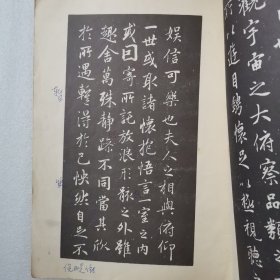 觀宇宙之大俯察品類
以遊目騁懷足以極視聽
娛信可樂也夫人之相與俯仰
一世或取諸懷抱悟言一室之內
或因寄所託放浪形骸之外雖
趣舍萬殊靜躁不同當其欣
於所遇蹔得於己怏然自足不